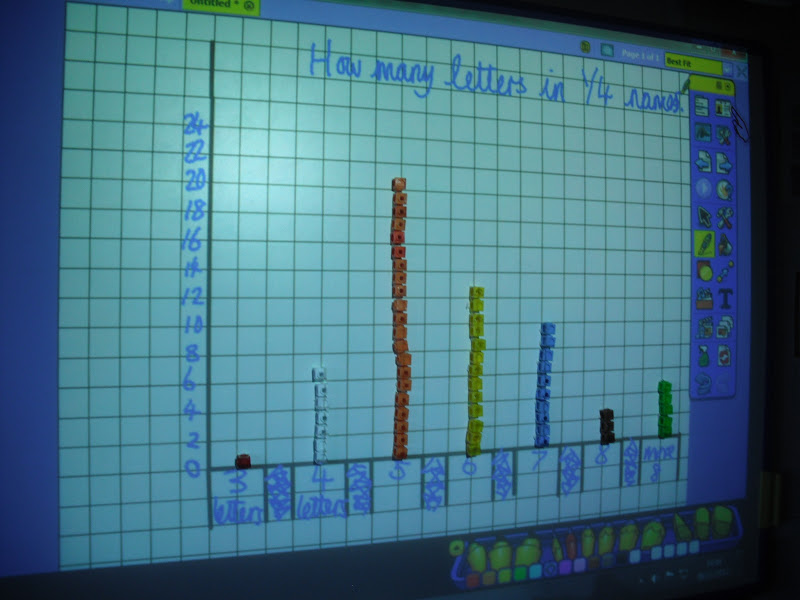 Untitled *
Page 1 of 1
Best Fit
How many letters in 1/4 names.
24
22
20
18
16
14
12
10
8
6
4
2
0
3 4 5 6 7 8 more
8
letters letters